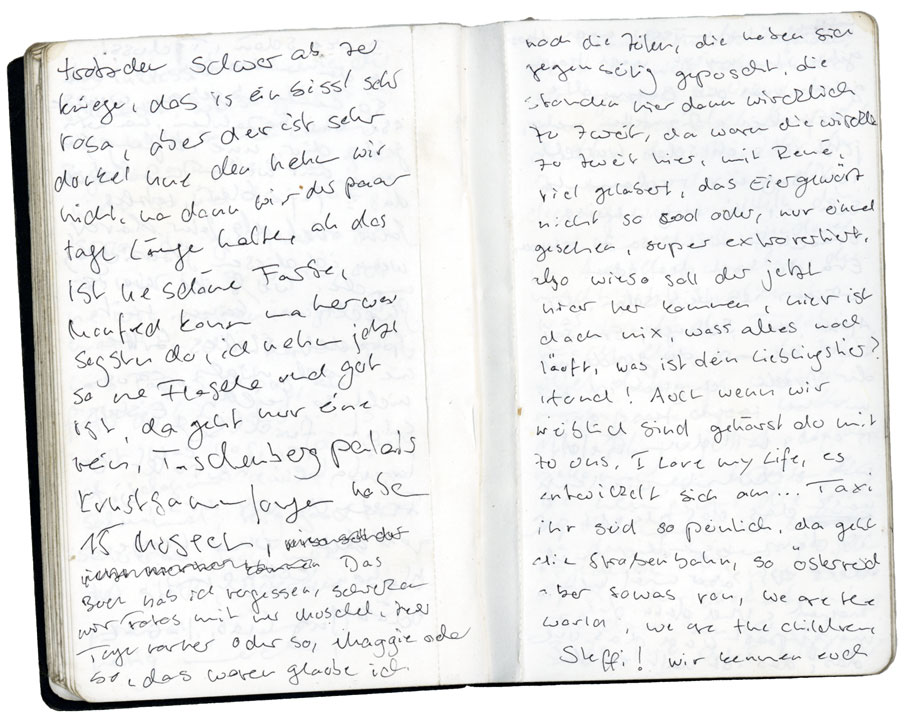 trotzden schwer ab zu
kriege, das is ein bissl sehr
rosa, aber der ist sehr
dunkel und den nehm wir
nicht, na dann wir des paar
tage länge halte, ah das
ist ne schöne Farbe,
Manfred komm ma her was
sagst du, ich nehm jetzt
so ne Flasche und gut
ist, da geht nur eine
rein, Taschenberg palais
Kunstsammlungen habe
15 Museen,
Das
Buch hab ich vergessen,
wir Fotos mit ner Muschel, zwei
Tage vorher oder so, Maggie oder
so, das waren glaube ich
noch die Zölln, die haben sich
gegenseitig gepuscht, die
standen hier dann wircklich
zu zweit, da waren die wirckl
zu zweit hier, mit René,
viel gelabert, das Eiergewürz
nicht so oder, nur einmal
gesehen, super extrovertiert,
also wieso soll der jetzt
hier her kommen, hier ist
doch nix, wass alles noch
läuft, was ist dein Lieblingstier?
stand! Auch wenn wir
weiblich sind gehörst du mit
zu uns, I Love my Life, es
entwickelt sich am... Taxi
ihr seid so peinlich, da geht
die Straßenbahn, so Österreich
aber sowas von, we are the
world, we are the children,
Steffi! wir kennen euch